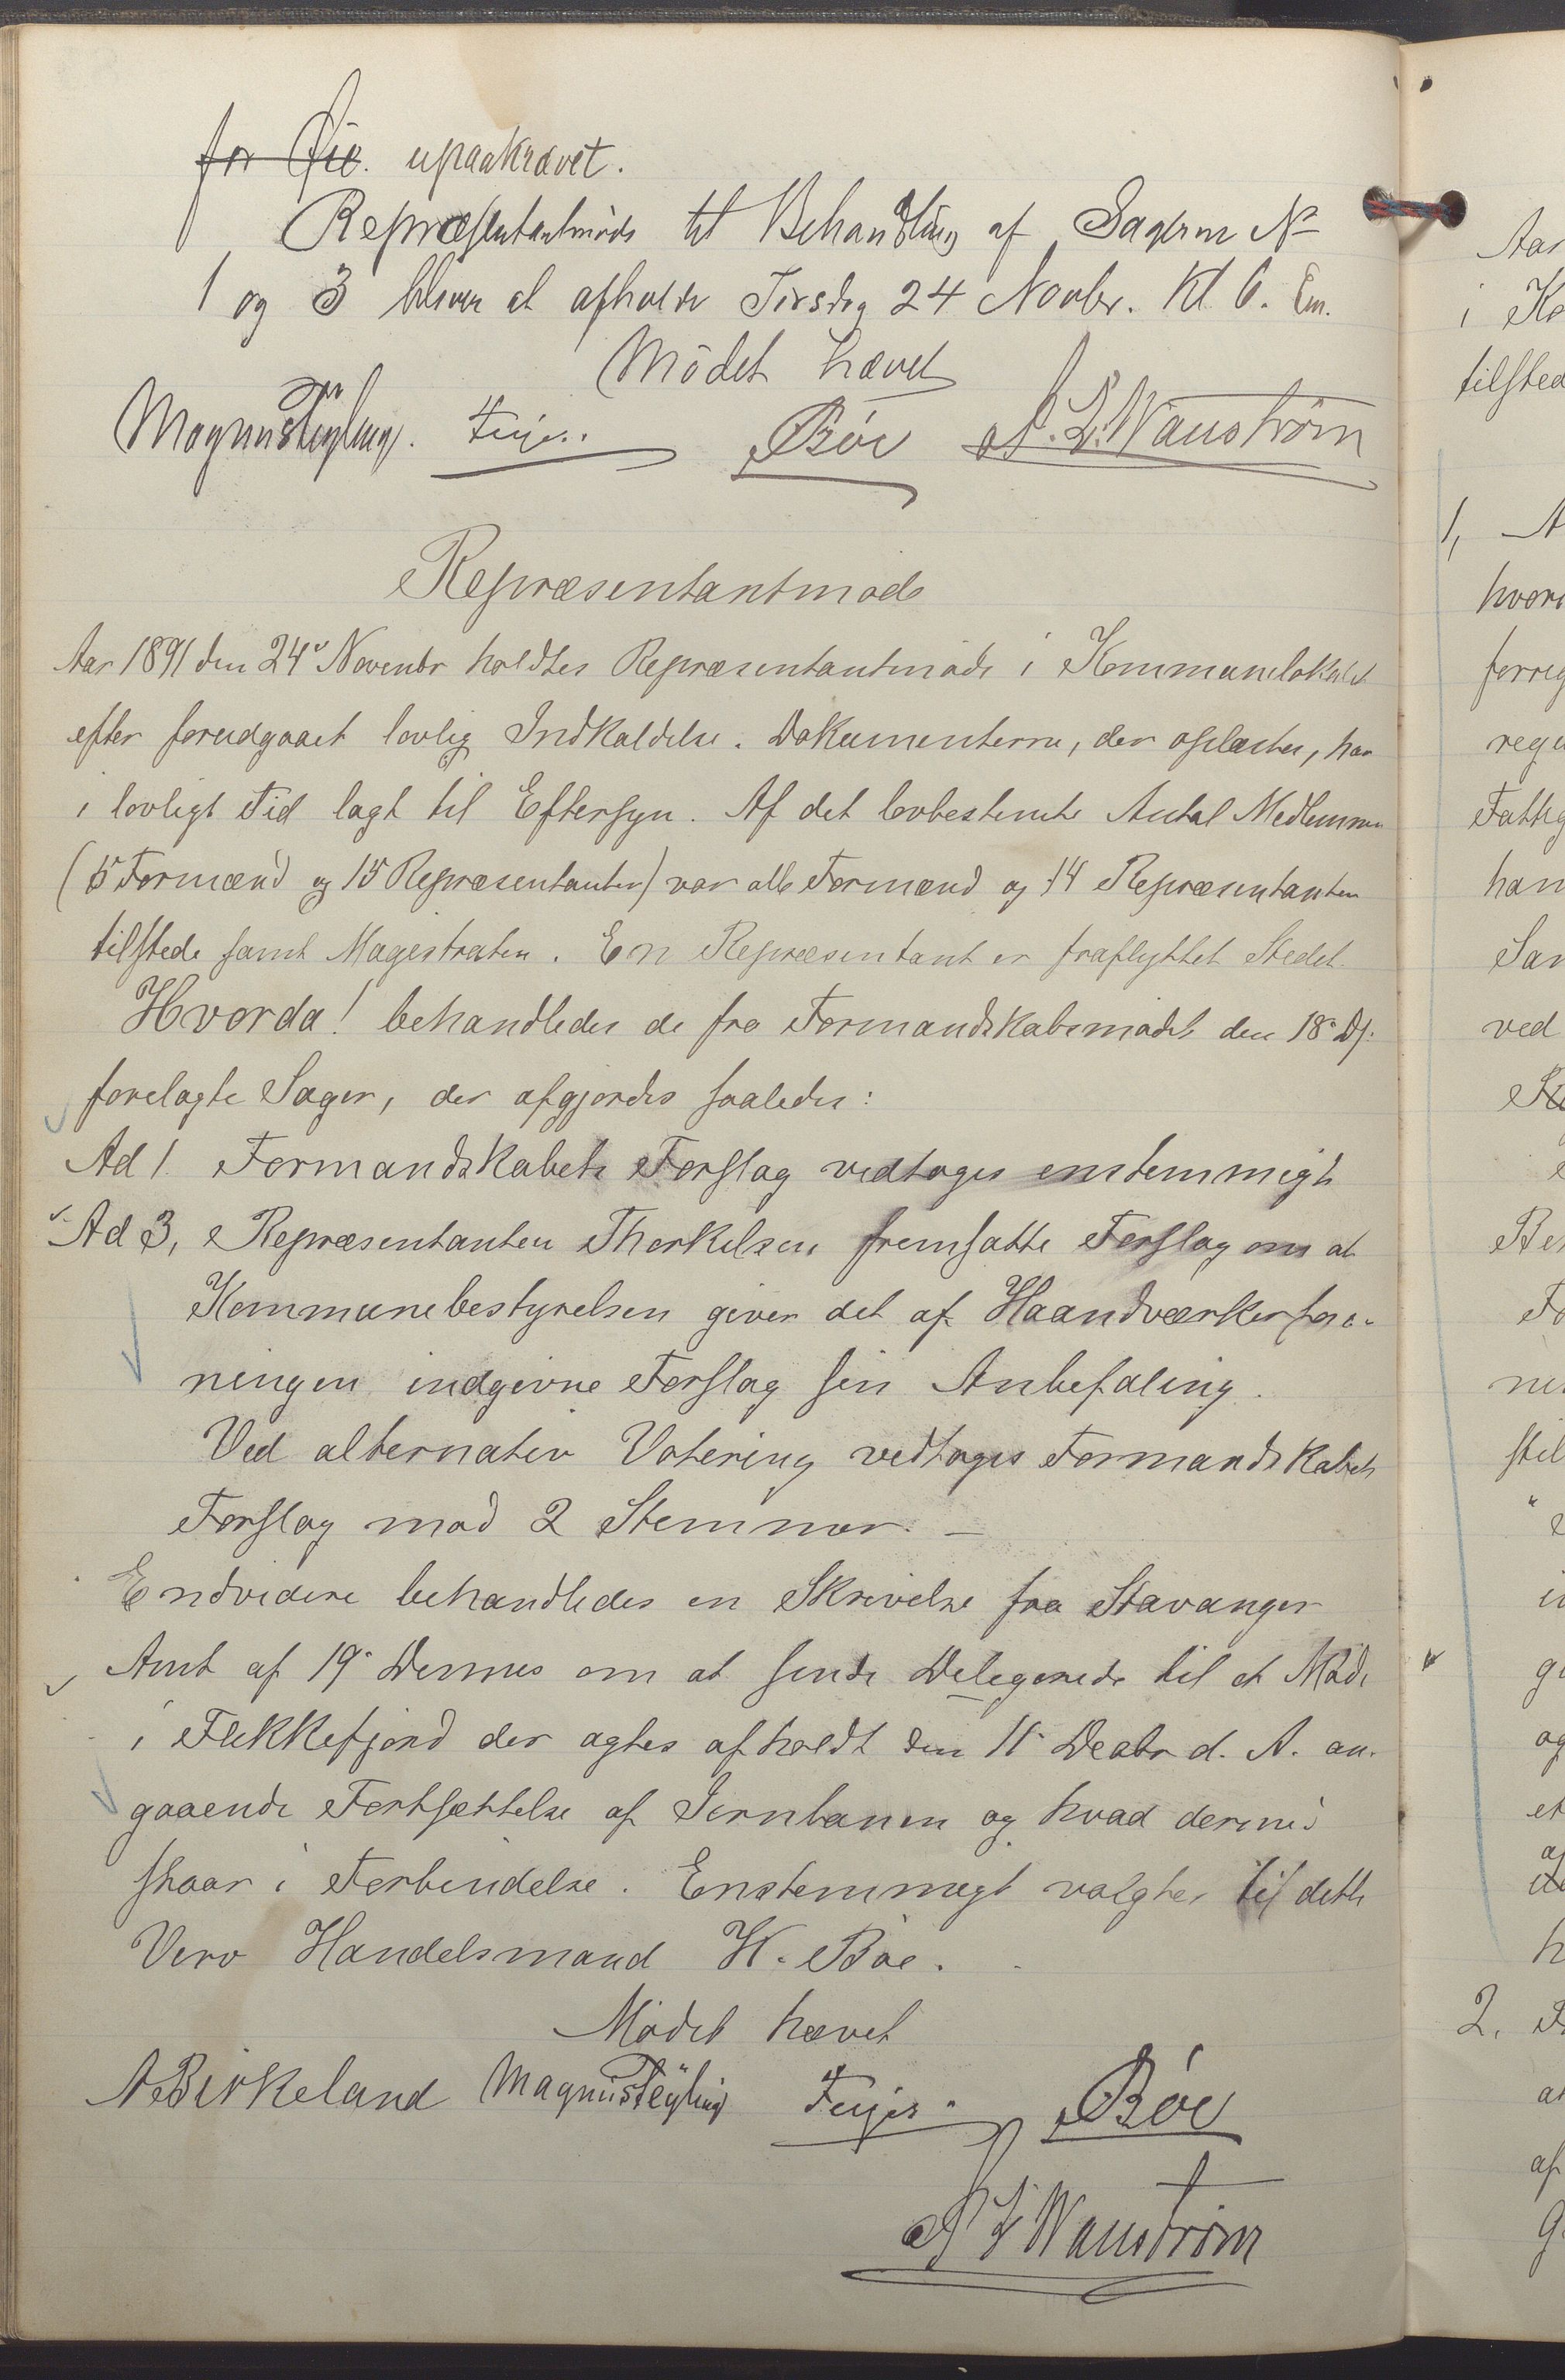 for upaakrævet.
Repræsentantmøde til Behandling af Sagerne No
1 og 3 bliver at afholde Tirsdag 24 Novbr. Kl 6. Em.
Mødet hævet
Magnus Tegling. Feyer. Bøe L. Wanstrøm
Repræsentantmøde
Aar 1891 den 24de Novembr holdtes Repræsentantmøde i Kommunelokalet
efter forudgaaet lovlig Indkaldelse. Dokumenterne, der oplæstes, har
i lovligt Tid lagt til Eftersyn. Af det lovbestemte Antal Medlemmer
(5 Formænd og 15 Repræsentanter) var alle Formænd og 14 Repræsentanter
tilstede samt Magistraten. En Repræsentant er fraflyttet Stedet.
Hvorda! behandledes de fra Formandskabsmødet den 18de Ds.
forelagte Sager, der afgjordes saaledes:
Ad 1 Formandskabets Forslag vedtoges enstemmigt
Ad 3, Repræsentanten Thorkelsen fremsatte Forslag om at
Kommunebestyrelsen giver det af Haandværkerfore-
ningen indgivne Forslag sin Anbefaling.
Ved alternativ Votering vedtoges Formandskabets
Forslag mod 2 Stemmer. —
Endvidere behandledes en Skrivelse fra Stavanger
Amt af 19de Dennes om at sende Delegerede til et Møde
i Flekkefjord der agtes afholdt den 11te Decbr d. A. an-
gaaende Fortsættelse af Jernbanen og hvad dermed
staar i Forbindelse. Enstemmigt valgtes til dette
Verv Handelsmand W. Bøe.
Mødet hævet
A Birkeland Magnus Tegling Feyer. Bøe
L Wanstrøm
Aar
i Ko
tilsted
1, A
hvori
forreg
regu
Fattig
han
San
ved
ni
stil
2.